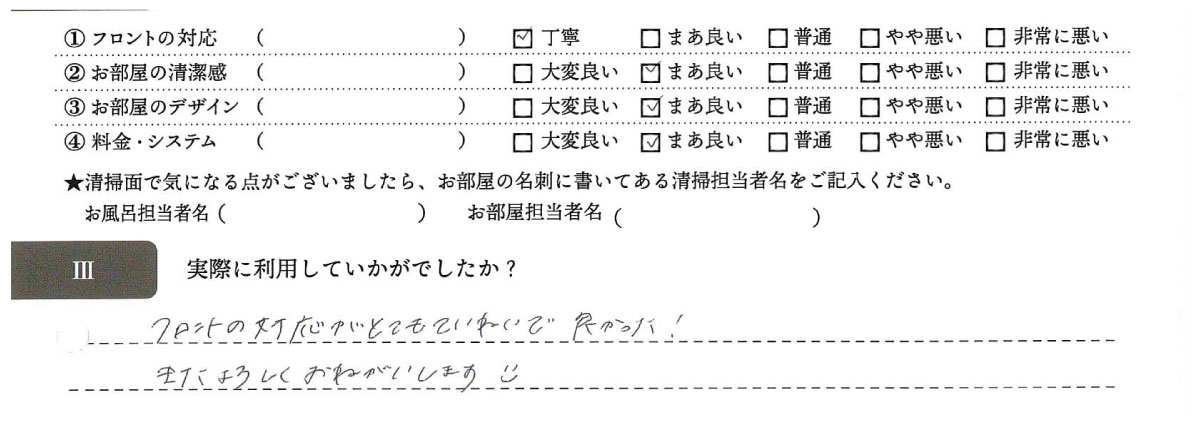 ① フロントの対応 ( ) ☑ 丁寧 □ まあ良い □ 普通 □ やや悪い □ 非常に悪い
② お部屋の清潔感 ( ) □ 大変良い ☑ まあ良い □ 普通 □ やや悪い □ 非常に悪い
③ お部屋のデザイン ( ) □ 大変良い ☑ まあ良い □ 普通 □ やや悪い □ 非常に悪い
④ 料金・システム ( ) □ 大変良い ☑ まあ良い □ 普通 □ やや悪い □ 非常に悪い
★清掃面で気になる点がございましたら、お部屋の名刺に書いてある清掃担当者名をご記入ください。
お風呂担当者名 ( ) お部屋担当者名 ( )
Ⅲ 実際に利用していかがでしたか？
フロントの対応がとてもていねいで良かった！
またよろしくおねがいします